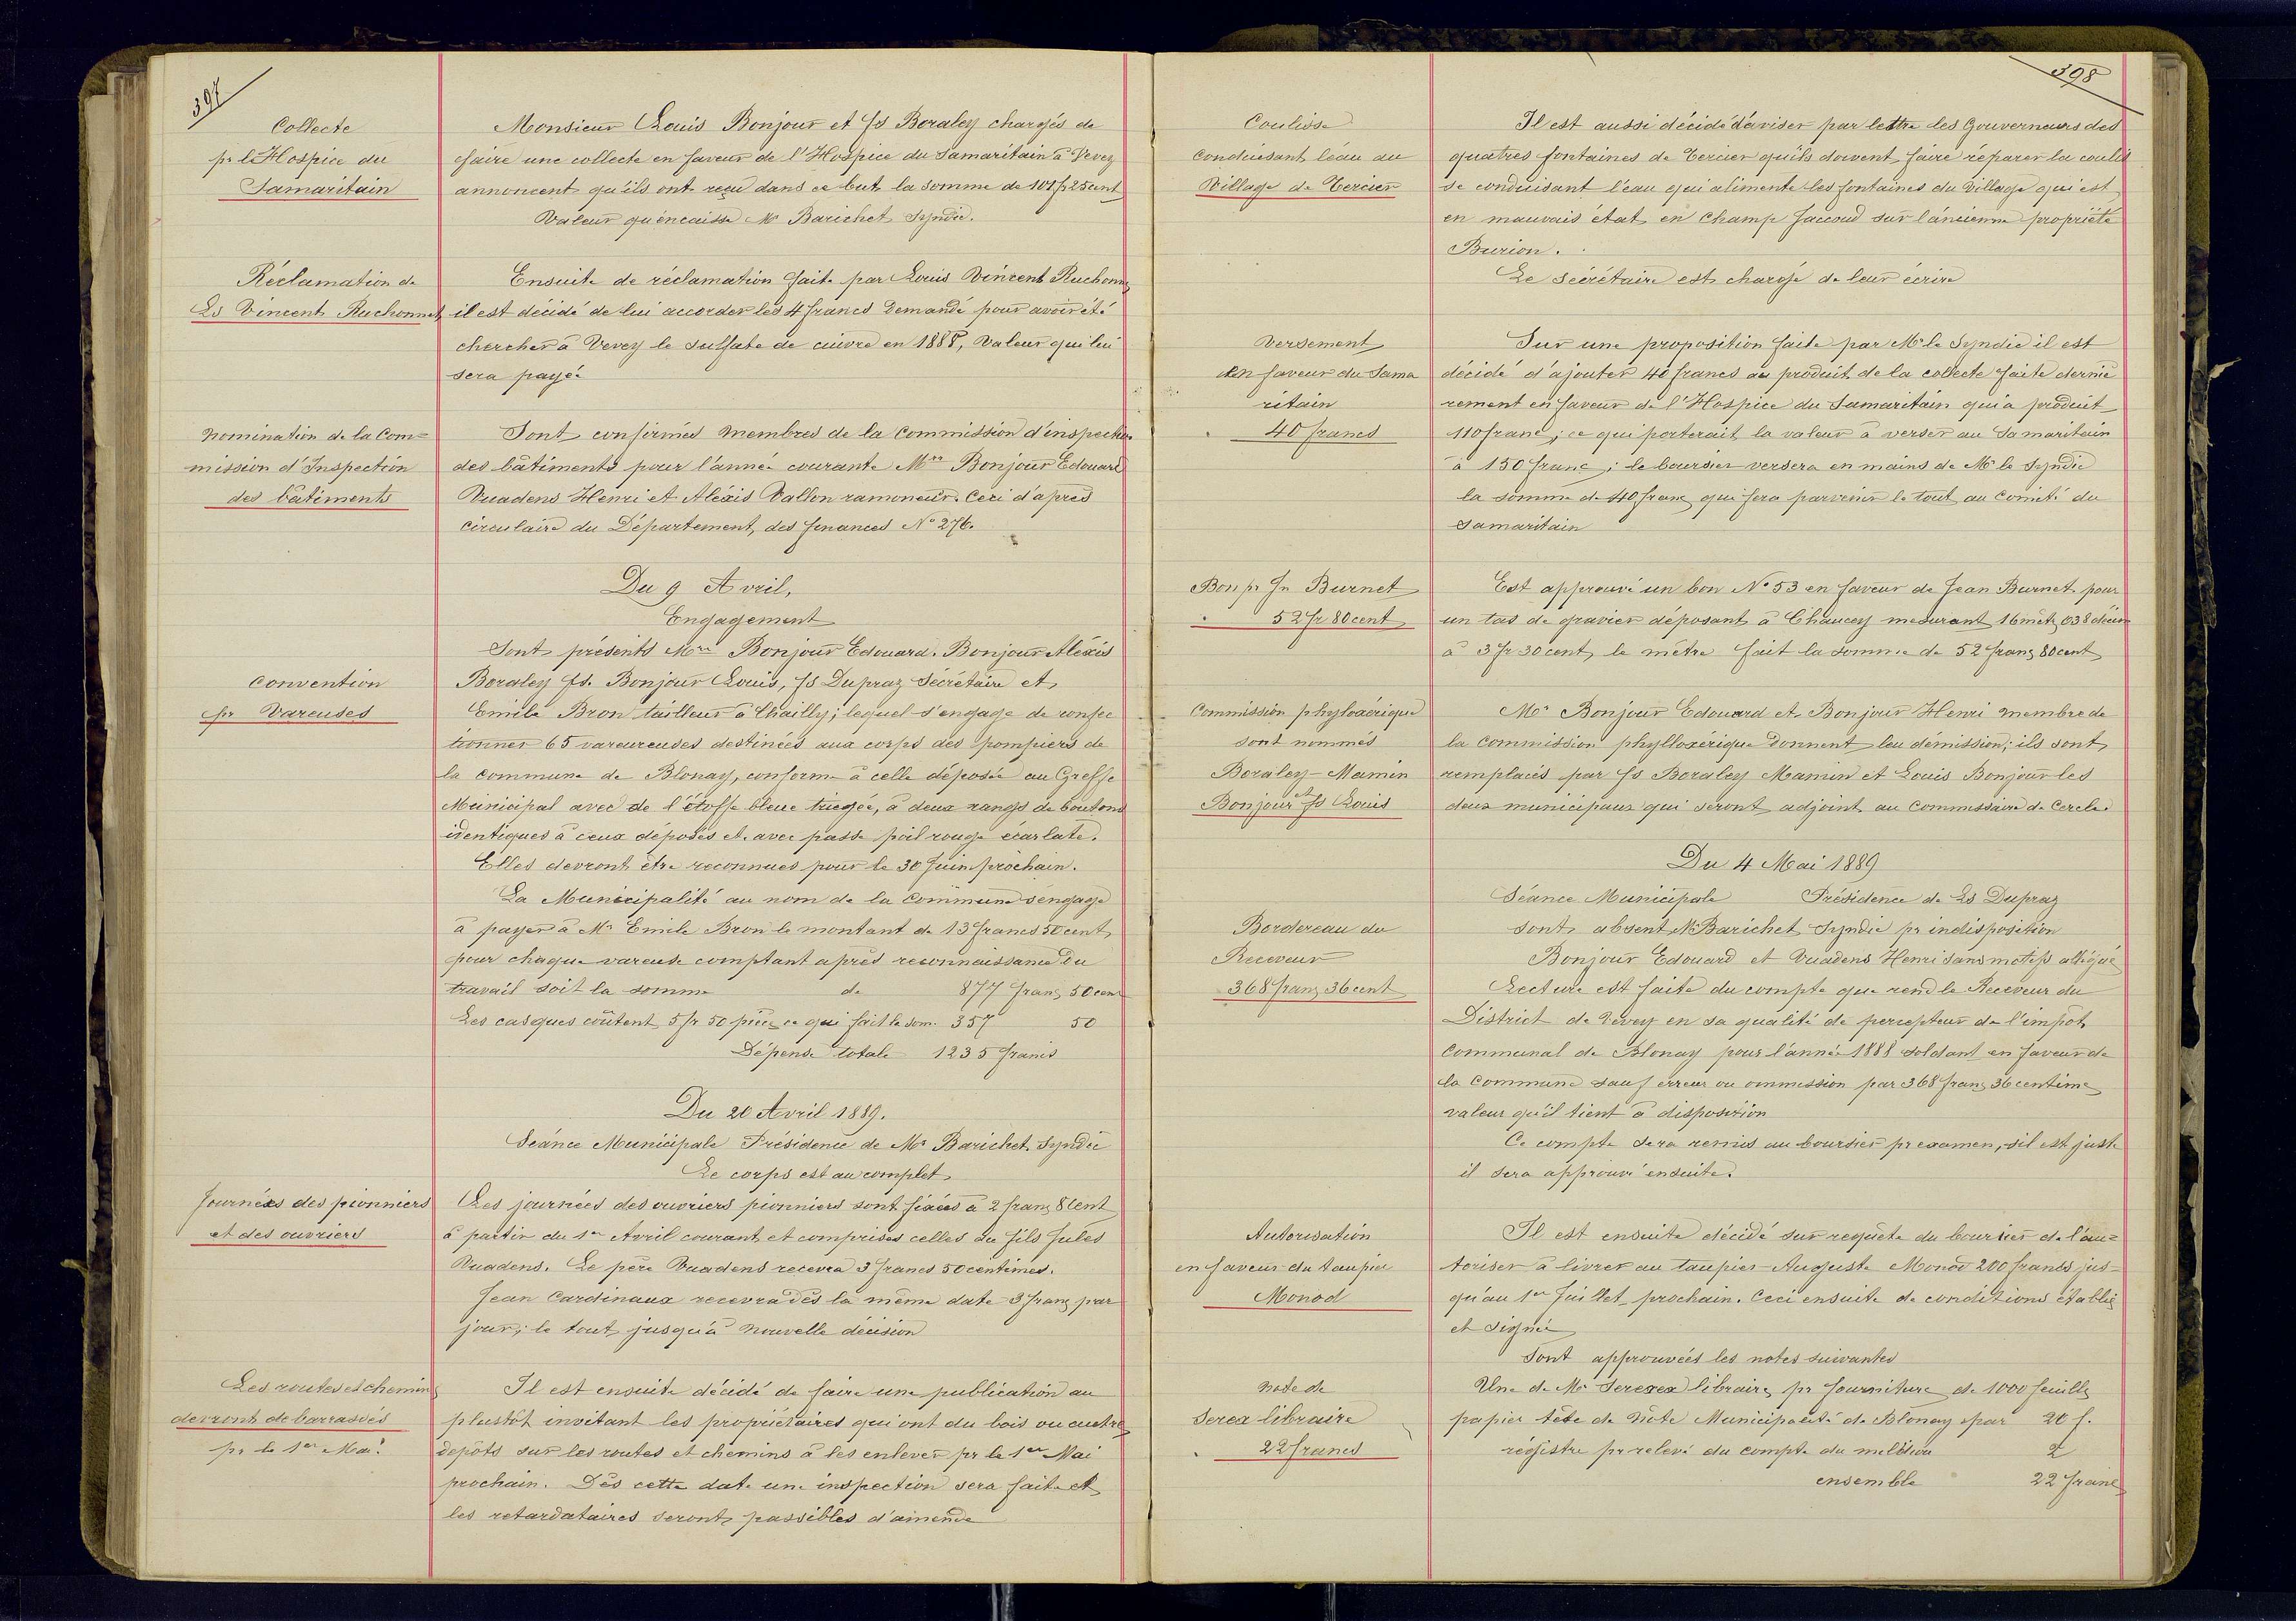 397
Collecte
pr l'Hospice du
Samaritain
Monsieur Louis Bonjour et fs Boraley chargés de
faire une collecte en faveur de l'Hospice du Samaritain à Vevey
annoncent qu'ils ont reçu dans ce but la somme de 101 fr 25 cent
Valeur qu'encaisse Mr Barichet Syndic.
Réclamation de
Ls Vincent Ruchonnet
Ensuite de réclamation faite par Louis Vincent Ruchonnet
il est décidé de lui accorder les 4 francs Demandé pour avoir été
chercher à Vevey le sulfate de cuivre en 1888, Valeur qui lui
sera payée
Nomination de la Com=
mission d'Inspection
des bâtiments
Sont confirmés membres de la Commission d'inspection
des bâtiments pour l'année courante Mrs Bonjour Edouard
Vuadens Henri et Aléxis Vallon ramoneur. Ceci d'après
circulaire du Département des finances No 276.
Du 9 Avril,
Engagement
Convention
pr Vareuses
Sont présents Mrs Bonjour Edouard. Bonjour Aléxis
Boraley fs. Bonjour Louis, fs Dupraz Secrétaire et
Emile Bron tailleur à Chailly; lequel s'engage de confec
tionner 65 vareureuses destinées aux corps des pompiers de
la commune de Blonay, conforme à celle déposée au Greffe
Municipal avec de l'étoffe bleue triegée, à deux rangs de boutons
identiques à ceux déposés et avec passe poil rouge écarlate.
Elles devront être reconnues pour le 30 Juin prochain.
La Municipalité au nom de la Commune s'engage
à payer à Mr Emile Bron le montant de 13 francs 50 cent
pour chaque vareuse comptant après reconnaissance Du
travail soit la somme de 877 franc 50 cent
Les casques coûtent 5 fr 50 pièce ce qui fait la som. 357 50
Dépense totale 1235 francs
Du 20 Avril 1889.
Séance Municipale Présidence de Mr Barichet Syndic
Le corps est au complet
Journées des pionniers
et des ouvriers
Les journées des ouvriers pionniers sont fixées à 2 franc 8 Cent
à partir du 1er Avril courant et comprises celles du fils Jules
Vuadens. Le père Vuadens recevra 3 francs 50 centimes.
Jean Cardinaux recevra dès la même date 3 franc par
jour; le tout jusqu'à nouvelle décision
Les routes et chemins
devront debarrassés
pr le 1er Mai.
Il est ensuite décidé de faire une publication au
plustôt invitant les propriétaires qui ont du bois ou autres
depôts sur les routes et chemins à les enlever pr le 1er Mai
prochain. Dès cette date une inspection sera faite et
les retardataires seront passibles d'amende
398
Coulisse
Conduisant l'eau au
Village de Tercier
Il est aussi décidé d'aviser par lettre les Gouverneurs des
quatres fontaines de Tercier qu'ils doivent faire réparer la coulis
se conduisant l'eau qui alimente les fontaines du Village qui est
en mauvais état en Champ Jaccoud sur l'ancienne propriété
Burion.
Le Secrétaire est chargé de leur écrire
Versement
en faveur du Sama
ritain
40 francs
Sur une proposition faite par Mr le Syndic il est
décidé d'ajouter 40 francs au produit de la collecte faite derniè
rement en faveur de l'Hospice du Samaritain qui a produit
110 franc; ce qui porterait la valeur à verser au Samaritain
à 150 franc; le boursier versera en mains de Mr le Syndic
la somme de 40 franc qui fera parvenir le tout au Comité du
Samaritain
Bon pr Jn Burnet
52 fr 80 cent
Est approuvé un bon No 53 en faveur de Jean Burnet pour
un tas de gravier déposant à Chaucey mesurant 16 mèt 038 décim
à 3 fr 30 cent le mètre fait la somme de 52 franc 80 cent
Commission phylloxérique
sont nommés
Boraley-Mamin
et
Bonjour fs Louis
Mr Bonjour Edouard et Bonjour Henri membre de
la Commission phylloxérique Donnent leu démission; ils sont
remplacés par fs Boraley Mamin et Louis Bonjour les
deux municipaux qui seront adjoint au Commissaire de Cercle.
Du 4 Mai 1889
Séance Municipale Présidence de Ls Dupraz
sont absent Mr Barichet Syndic pr indisposition
Bonjour Edouard et Vuadens Henri sans motifs allégué
Bordereau du
Receveur
368 franc 36 cent
Lecture est faite du compte que rend le Receveur du
District de Vevey en sa qualité de percepteur de l'impot
Communal de Blonay pour l'année 1888 soldant en faveur de
la Commune sauf erreur ou ommission par 368 franc 36 centime
valeur qu'il tient à disposition
Ce compte sera remis au boursier pr examen, s'il est juste
il sera approuvé ensuite.
Autorisation
en faveur du taupier
Monod
Il est ensuite décidé sur requête du boursier de l'au=
toriser à livrer au taupier Auguste Monod 200 francs jus-
qu'au 1er Juillet prochain. Ceci ensuite de conditions établie
et signée
Sont approuvées les notes suivantes
Note de
Serex libraire
22 francs
Une de Mr Serex libraire pr fourniture de 1000 feuille
papier tête de Note Municipalité de Blonay par 20 f.
régistre pr relevé du compte du 2
ensemble 22 franc